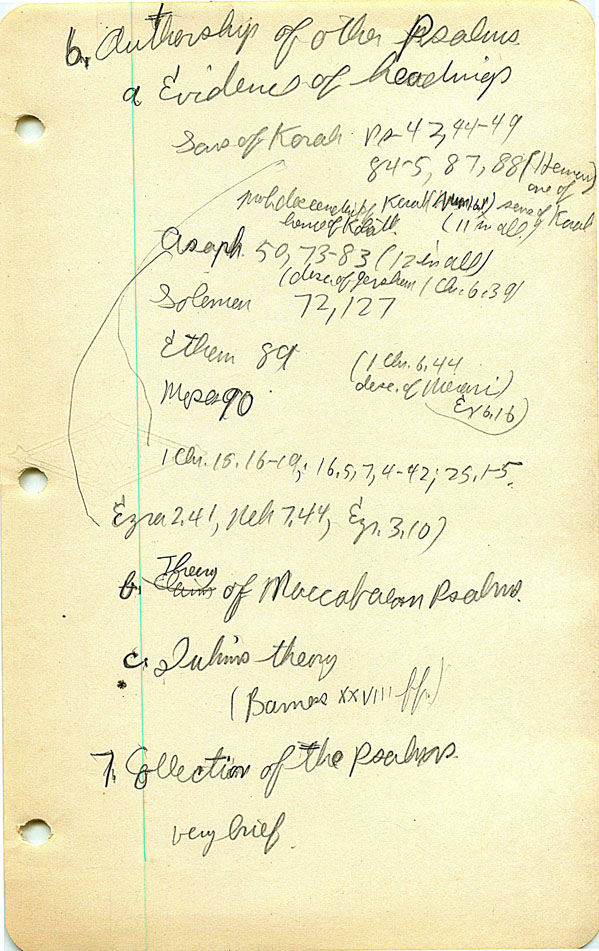 6. Authorship of other Psalms
a Evidence of headings
Sons of Korah Ps 42, 44-49
84-5, 87, 88 (Heman
one of
sons of Korah
prob. descendants of Korah
(11 in all)
Asaph 50, 73-83 (12 in all)
(desc. of Gershom 1 Chr. 6.39)
Solomon 72, 127
Ethan 89 (1 Chr. 6.44
desc. of Merari)
Moses 90
Ex 6.16)
1 Chr. 15.16-19; 16.5, 7, 4-42; 25.1-5.
Ezra 2.41, Neh 7.44, Ezr. 3.10)
b. Theory of Maccabaean Psalms.
c. theory
(Barnes XXVIII ff.)
7. Collection of the Psalms.
very brief.